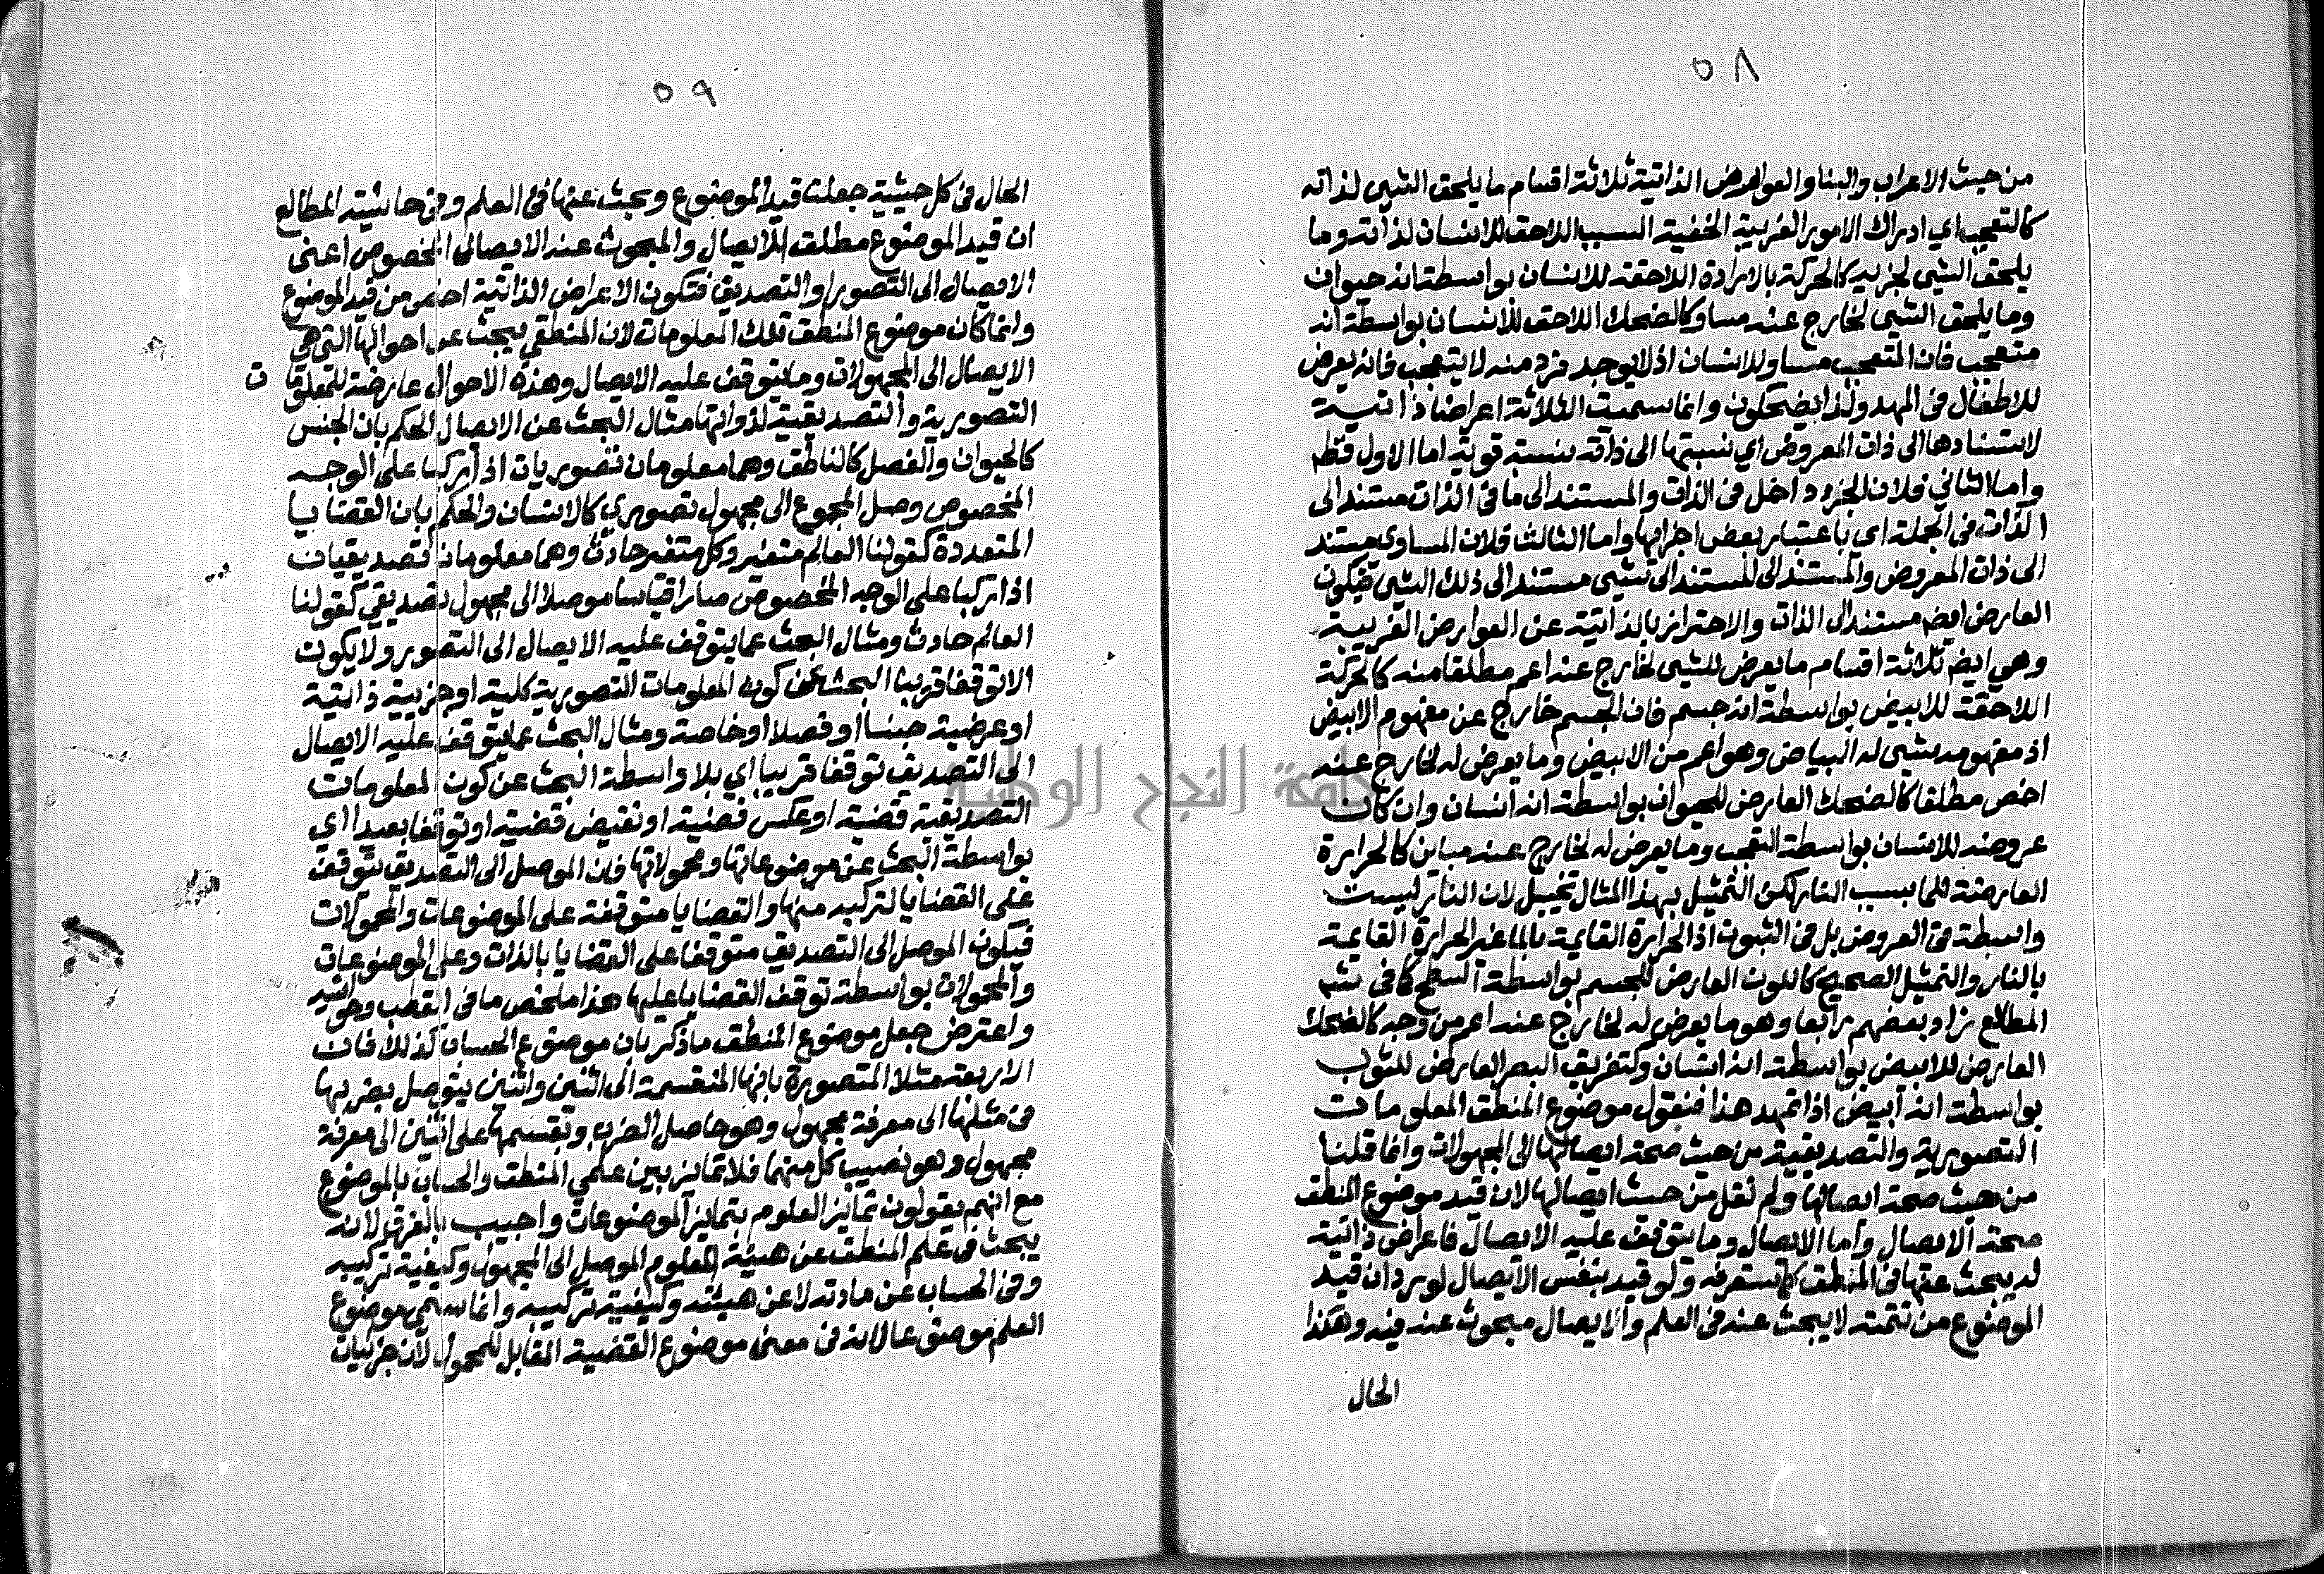 ٥٨
من حيث الاعراب والبنا والعوارض الذاتية ثلاثة اقسام ما يلحق الشيى لذاته
كالتعجب اي ادراك الامور الغريبة الخفية السبب اللاحق للانسان لذاته وما
يلحق الشيى لجزيه كالحركة بالارادة اللاحقة للانسان بواسطة انه حيوان
وما يلحق الشيى لخارج عنه مساو كالضحك اللاحق للانسان بواسطة انه
متعجب فان المتعجب مساو للانسان اذ لا يوجد فرد منه لا يتعجب فانه يعرض
للاطفال فى المهد ولذا يضحكون وانما سميت الثلاثة اعراضا ذاتية
لاستنادها الى ذات المعروض اي نسبتها الى ذاته نسبة قوية اما الاول فظ
واما الثاني فلان الجزء داخل فى الذات والمستند الى ما فى الذات مستند الى
الذات فى الجملة اي باعتبار بعض اجزايها واما الثالث فلان المساوى مستند
الى ذات المعروض والمستند الى المستند الى شيى مستند الى ذلك الشيى فيكون
العارض ايض مستند الى الذات والاحتراز بالذاتية عن العوارض الغريبة
وهي ايض ثلاثة اقسام ما يعرض للشيى لخارج عنه اعم مطلقا منه كالحركة
اللاحقة للابيض بواسطة انه جسم فان الجسم خارج عن مفهوم الابيض
اذ مفهومه شيى له البياض وهو اعم من الابيض وما يعرض له لخارج عنه
اخص مطلقا كالضحك العارض للحيوان بواسطة انه انسان وان كان
عروضه للانسان بواسطة التعجب وما يعرض له لخارج عنه مباين كالحرارة
العارضة للما بسبب النار لكن التمثيل بهذا المثال تخييل لان النار ليست
واسطة فى العروض بل فى الثبوت اذ الحرارة القايمة بالما غير الحرارة القايمة
بالنار والتمثيل الصحيح كاللون العارض للجسم بواسطة السطح كما فى
المطالع زاد بعضهم رابعا وهو ما يعرض له لخارج عنه اعم من وجه كالضحك
العارض للابيض بواسطة انه انسان وكتفريق البصر العارض للثوب
بواسطة انه ابيض اذا تمهد هذا فنقول موضوع المنطق المعلومات
التصورية والتصديقية من حيث صحة ايصالها الى المجهولات وانما قلنا
من حيث صحة ايصالها ولم نقل من حيث ايصالها لان قيد موضوع المنطق
صحة الايصال واما الايصال وما يتوقف عليه الايصال فاعراض ذاتية
له يبحث عنها فى المنطق كما ستعرفه ولو قيد بنفس الايصال لورد ان قيد
الموضوع من تتمته لا يبحث عنه فى العلم والايصال مبحوث عنه فيه وهكذا
الحال
٥٩
الحال فى كل حيثية جعلت قيد الموضوع وبحث عنها فى العلم وفى حاشية المطالع
ان قيد الموضوع مطلق الايصال والمبحوث عنه الايصال المخصوص اعنى
الايصال الى التصور او التصديق فتكون الاعراض الذاتية اخص من قيد الموضوع
وانما كان موضوع المنطق تلك المعلومات لان المنطقي يبحث عن احوالها التى هي
الايصال الى المجهولات وما يتوقف عليه الايصال وهذه الاحوال عارضة للمعلوما ت
التصورية والتصديقية لذواتها مثال البحث عن الايصال الحكم بان الجنس
كالحيوان والفصل كالناطق وهما معلومان تصوريات اذا ركبا على الوجه
المخصوص وصل المجموع الى مجهول تصوري كالانسان والحكم بان القضايا
المتعددة كقولنا العالم متغير وكل متغير حادث وهما معلومان تصديقيات
اذا تركبا على الوجه المخصوص صارا قياسا موصلا الى مجهول تصديقي كقولنا
العالم حادث ومثال البحث عما يتوقف عليه الايصال الى التصور ولا يكون
الا توقفا قريبا البحث عن كون المعلومات التصورية كلية او جزيية ذاتية
او عرضية جنسا او فصلا او خاصة ومثال البحث عما يتوقف عليه الايصال
الى التصديق توقفا قريبا اي بلا واسطة البحث عن كون المعلومات
التصديقية قضية او عكس قضية او نقيض قضية او توقفا بعيدا اي
بواسطة البحث عن موضوعاتها ومحمولاتها فان الموصل الى التصديق يتوقف
على القضايا لتركبه منها والقضايا متوقفة على الموضوعات والمحمولات
فيكون الموصل الى التصديق متوقفا على القضايا بالذات وعلى الموضوعات
والمحمولات بواسطة توقف القضايا عليها هذا ملخص ما فى القطب وحواشيه
واعترض جعل موضوع المنطق ما ذكر بان موضوع الحساب كذلك فان
الاربعة مثلا المتصورة بانها المنقسمة الى اثنين واثنين يتوصل بضربها
فى مثلها الى معرفة مجهول وهو حاصل الضرب وتقسمها على اثنين الى معرفة
مجهول وهو نصيب كل منهما فلا تمايز بين علمي المنطق والحساب بالموضوع
مع انهم يقولون تمايز العلوم بتمايز الموضوعات واجيب بالفرق لانه
يبحث فى علم المنطق عن هيئة المعلوم الموصل الى المجهول وكيفية تركيبه
وفى الحساب عن مادته لا عن هيئته وكيفية تركيبه وانما سمى موضوع
العلم موضوعا لانه فى معنى موضوع القضية المقابل للمحمول لان جزئيات
جامعة النجاح الوطنية